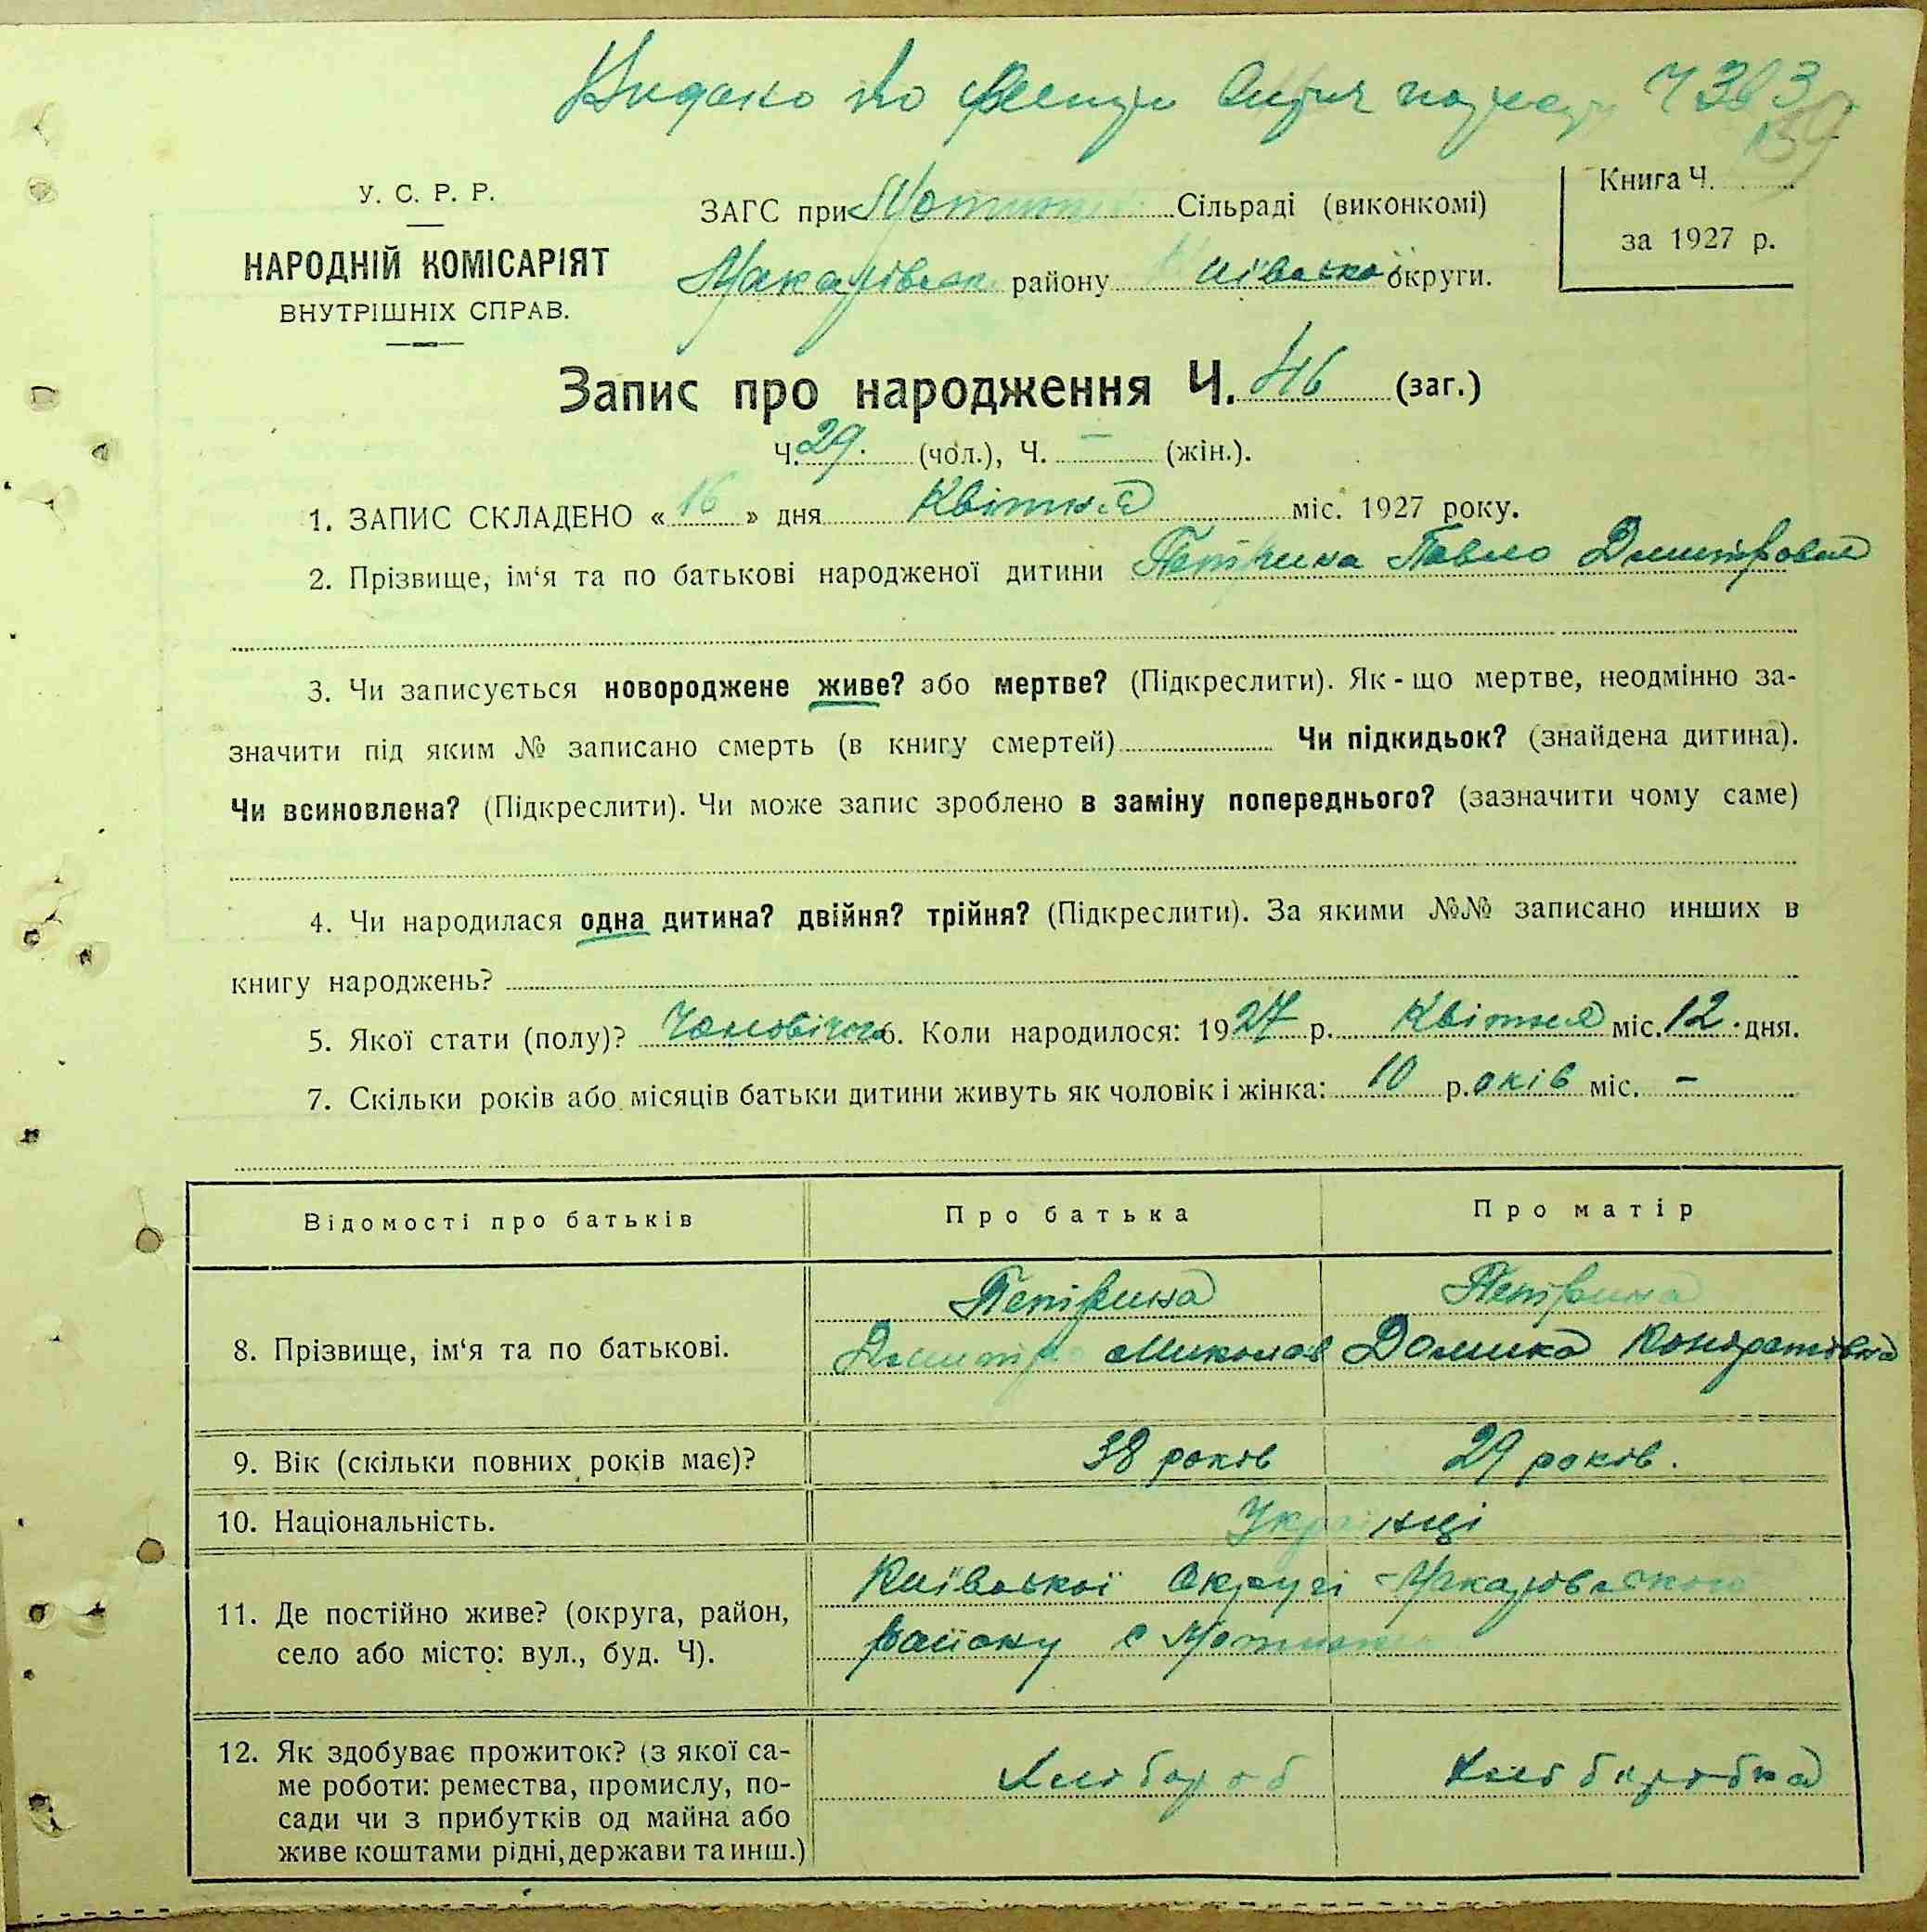 Видано по
У. С. Р. Р.
НАРОДНІЙ КОМІСАРІЯТ
ВНУТРІШНІХ СПРАВ.
ЗАГС при Сільраді (виконкомі)
Макарівськ району Київської округи.
Книга Ч.
за 1927 р.
Запис про народження Ч. 46 (заг.)
Ч. 29. (чол.), Ч. – (жін.).
1. ЗАПИС СКЛАДЕНО « 16 » дня Квітня міс. 1927 року.
2. Прізвище, ім‘я та по батькові народженої дитини Петрина Павло Дмитрович
3. Чи записується новороджене живе? або мертве? (Підкреслити). Як-що мертве, неодмінно за-
значити під яким № записано смерть (в книгу смертей) Чи підкидьок? (знайдена дитина).
Чи всиновлена? (Підкреслити). Чи може запис зроблено в заміну попереднього? (зазначити чому саме)
4. Чи народилася одна дитина? двійня? трійня? (Підкреслити). За якими №№ записано инших в
книгу народжень?
5. Якої стати (полу)? Чоловічого 6. Коли народилося: 1927 р. Квітня міс. 12. дня.
7. Скільки років або місяців батьки дитини живуть як чоловік і жінка: 10 р.оків міс. –
Відомості про батьків Про батька Про матір
8. Прізвище, ім‘я та по батькові.
Петрина Петрина
Дмитро Миколав Домика Кондратівна
9. Вік (скільки повних років має)? 38 років 29 років.
10. Національність. Українці
11. Де постійно живе? (округа, район,
село або місто: вул., буд. Ч).
Київської Округі Макарівського
району с Мотижин
12. Як здобуває прожиток? (з якої са-
ме роботи: ремества, промислу, по-
сади чи з прибутків од майна або
живе коштами рідні, держави та инш.)
Хлібороб Хліборобка